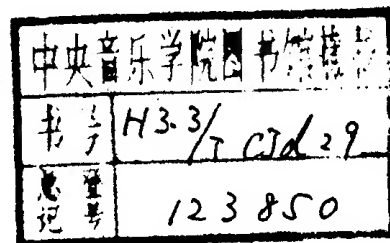 中央音乐学院图书馆藏书
书号 H3.3/T CJd29
总登记号 123850